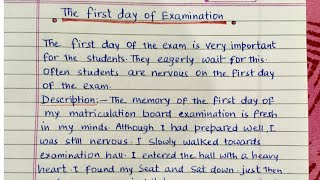 The first day of Examination
The first day of the exam is very important
for the students. They eagerly wait for this.
Often students are nervous on the first day
of the exam.
Description:- The memory of the first day of
my matriculation board examination is fresh
in my minds. Although I had prepared well I
was still nervous. I slowly walked towards
examination hall. I entered the hall with a heavy
heart I found my Seat and Sat down just then